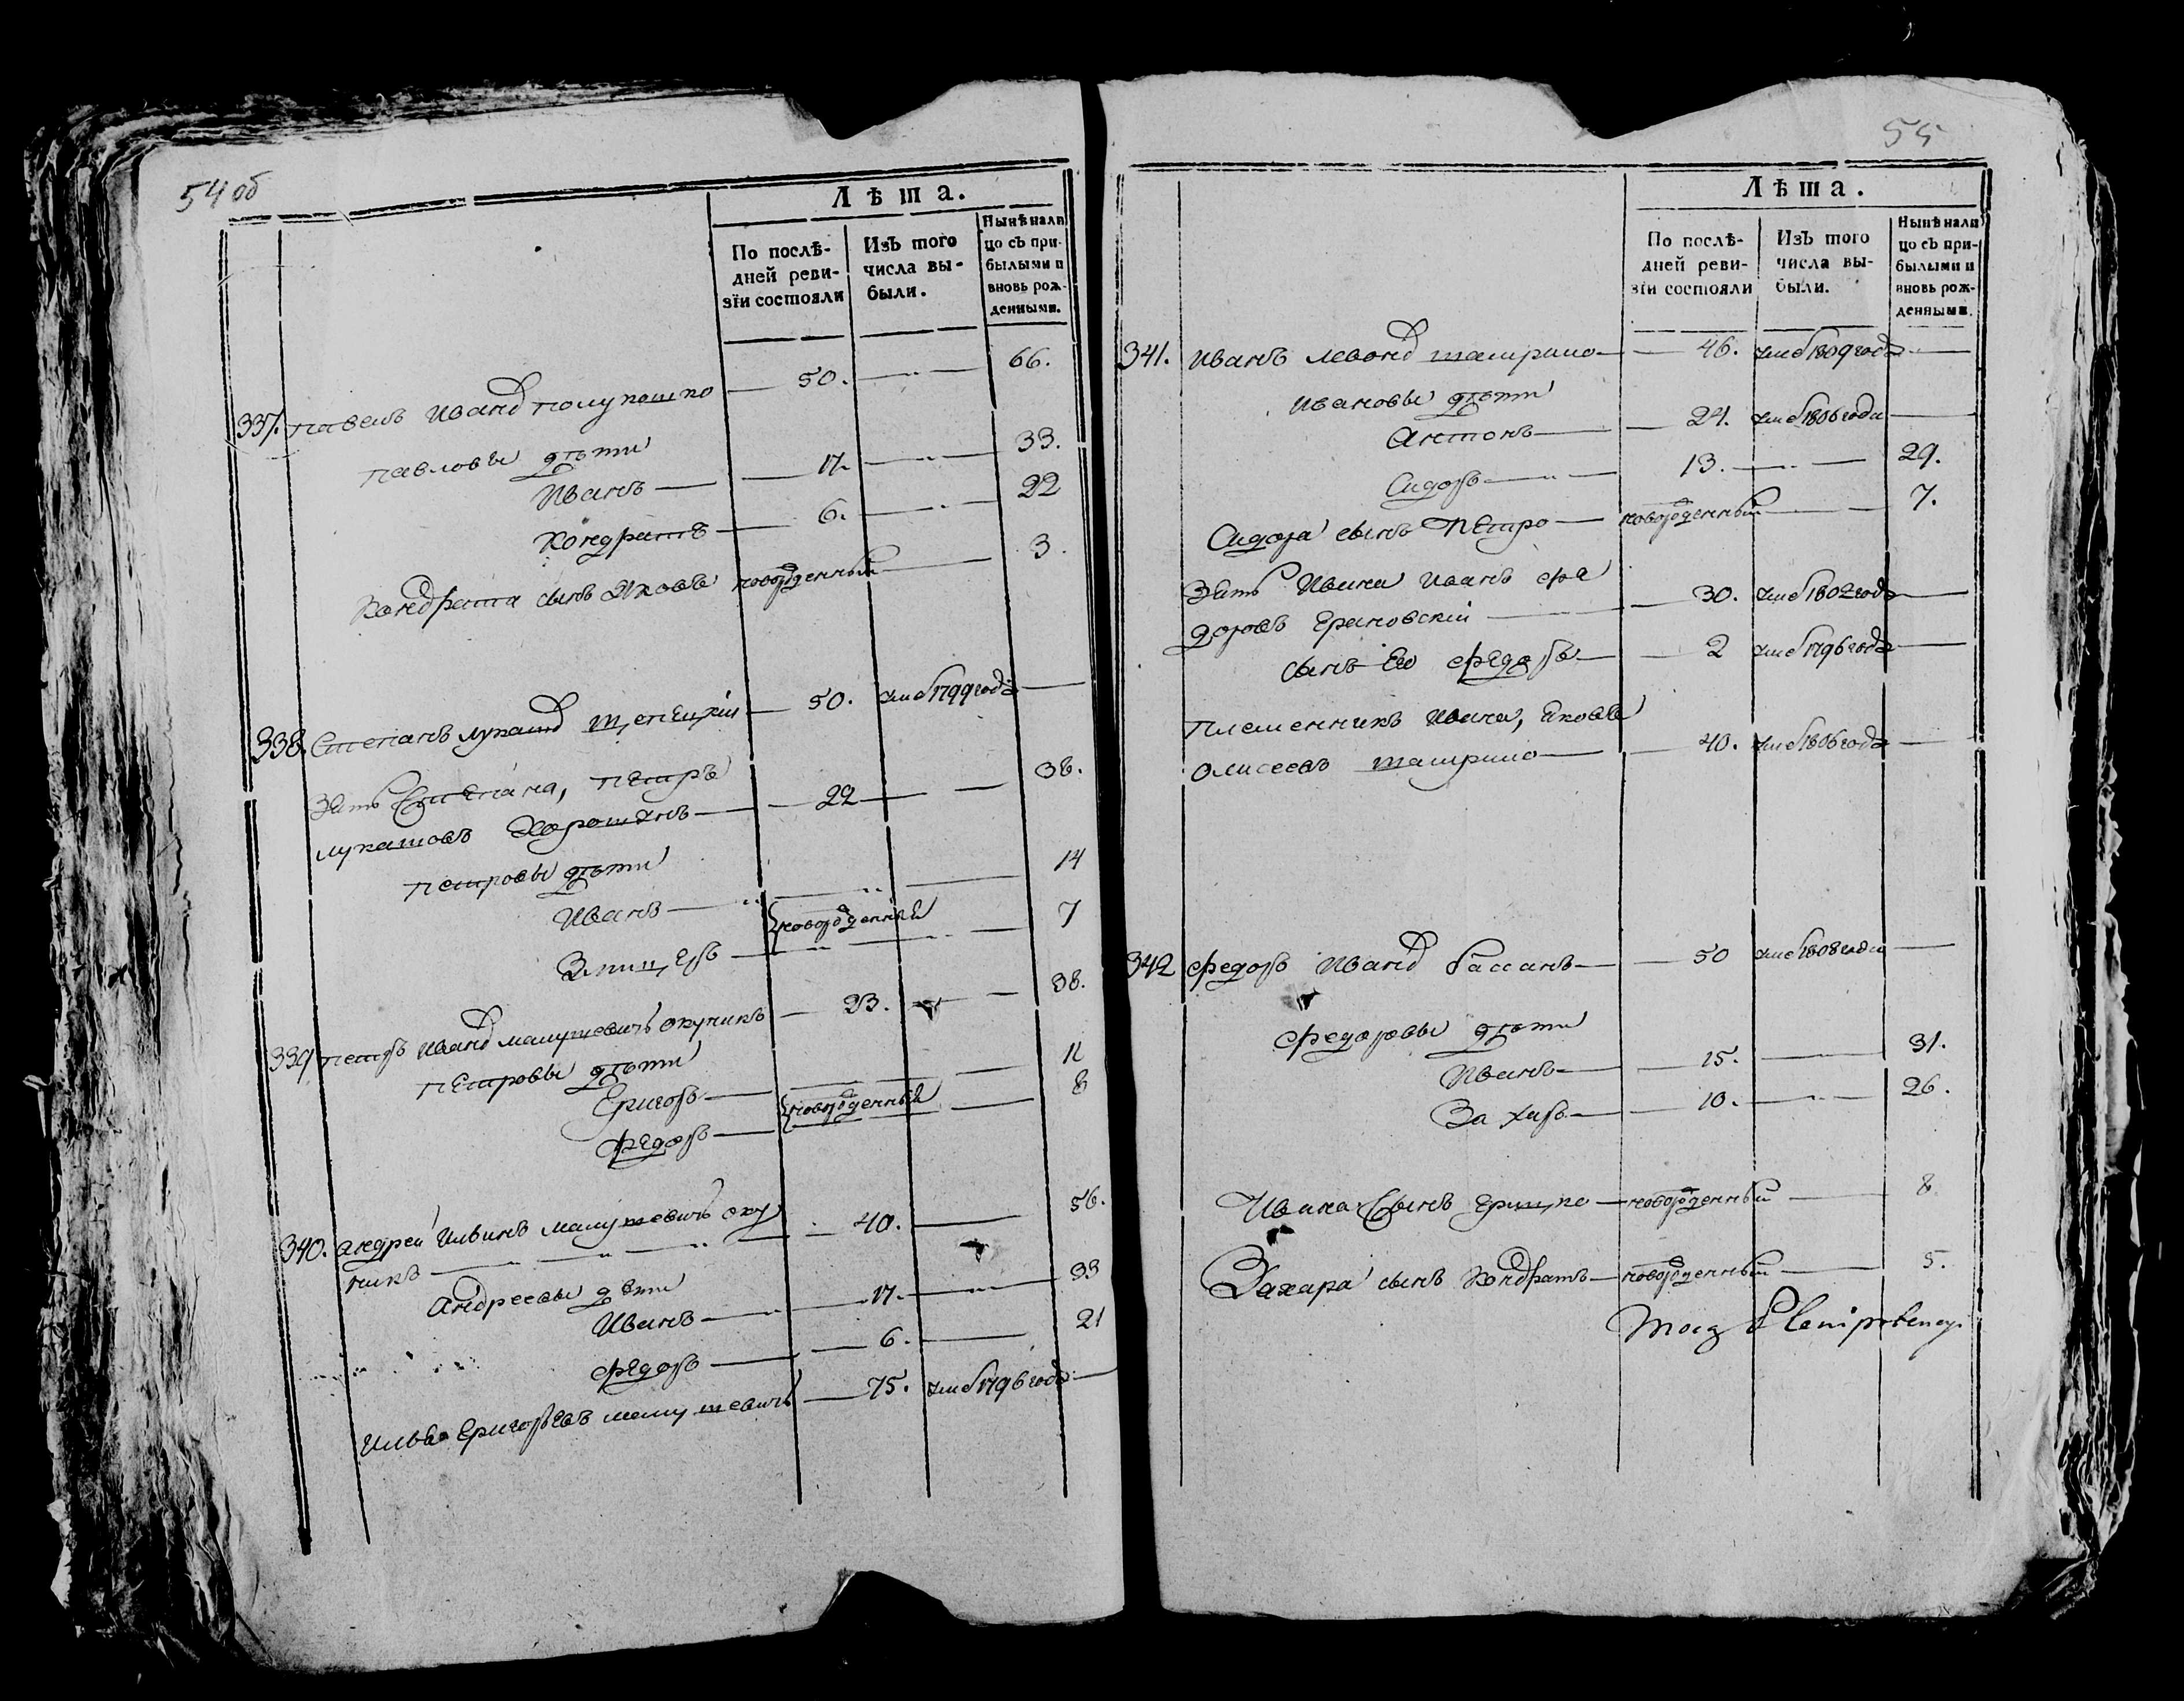 54 об
Лѣта.
По послѣ-
дней реви-
зїи состояли
Изъ того
числа вы-
были.
Нынѣ нали
цо съ при-
былыми и
вновь рож-
денными.
337. Павелъ Иванов Полукошко — 50. — 66.
Павловы дѣти
Иванъ — 17. — 33.
Кондратъ — 6. — 22
Кондрата сынъ Яковъ новорожденный — 3.
338. Степанъ Лукашов — 50. умер 1799 года —
Зять Степана, Петръ
Лукашовъ — 22 — 38.
Петровы дѣти
Иванъ — 14
новорожденный
— 7
339 Петръ Иванов Малушевичъ Окуникъ — 23. — 38.
Петровы дѣти
Григоръ — 11
новорожденный
Федоръ — 8
340. Андрей Ильинъ Малушевичъ Оку
никъ — 40. — 56.
Андреевы дѣти
Иванъ — 17. — 33
Федоръ — 6. — 21
Илья Григорьевъ Малушевичъ — 75. умер 1796 года —
55
Лѣта.
По послѣ-
дней реви-
зїи состояли
Изъ того
числа вы-
были.
Нынѣ нали
цо съ при-
былыми и
вновь рож-
денными.
341. Иванъ Левонов — 46. умер 1809 года —
Ивановы дѣти
Антонъ — 24. умер 1806 года —
Сидоръ — 13. — 29.
Сидора сынъ Петро — новорожденный — 7.
Зять Ивана Иванъ Фе
доровъ — 30. умер 1802 года —
сынъ Его Федоръ — 2 умер 1796 года —
Племенникъ Ивана, Яковъ
Олисеевъ — 40. умер 1806 года —
342 Федоръ Иванов Басанъ — 50 умер 1808 года —
Федоровы дѣти
Иванъ — 15. — 31.
Захаръ — 10. — 26.
Ивана Сынъ Грицко — новорожденный — 8
Захара сынъ Кондратъ — новорожденный — 5.